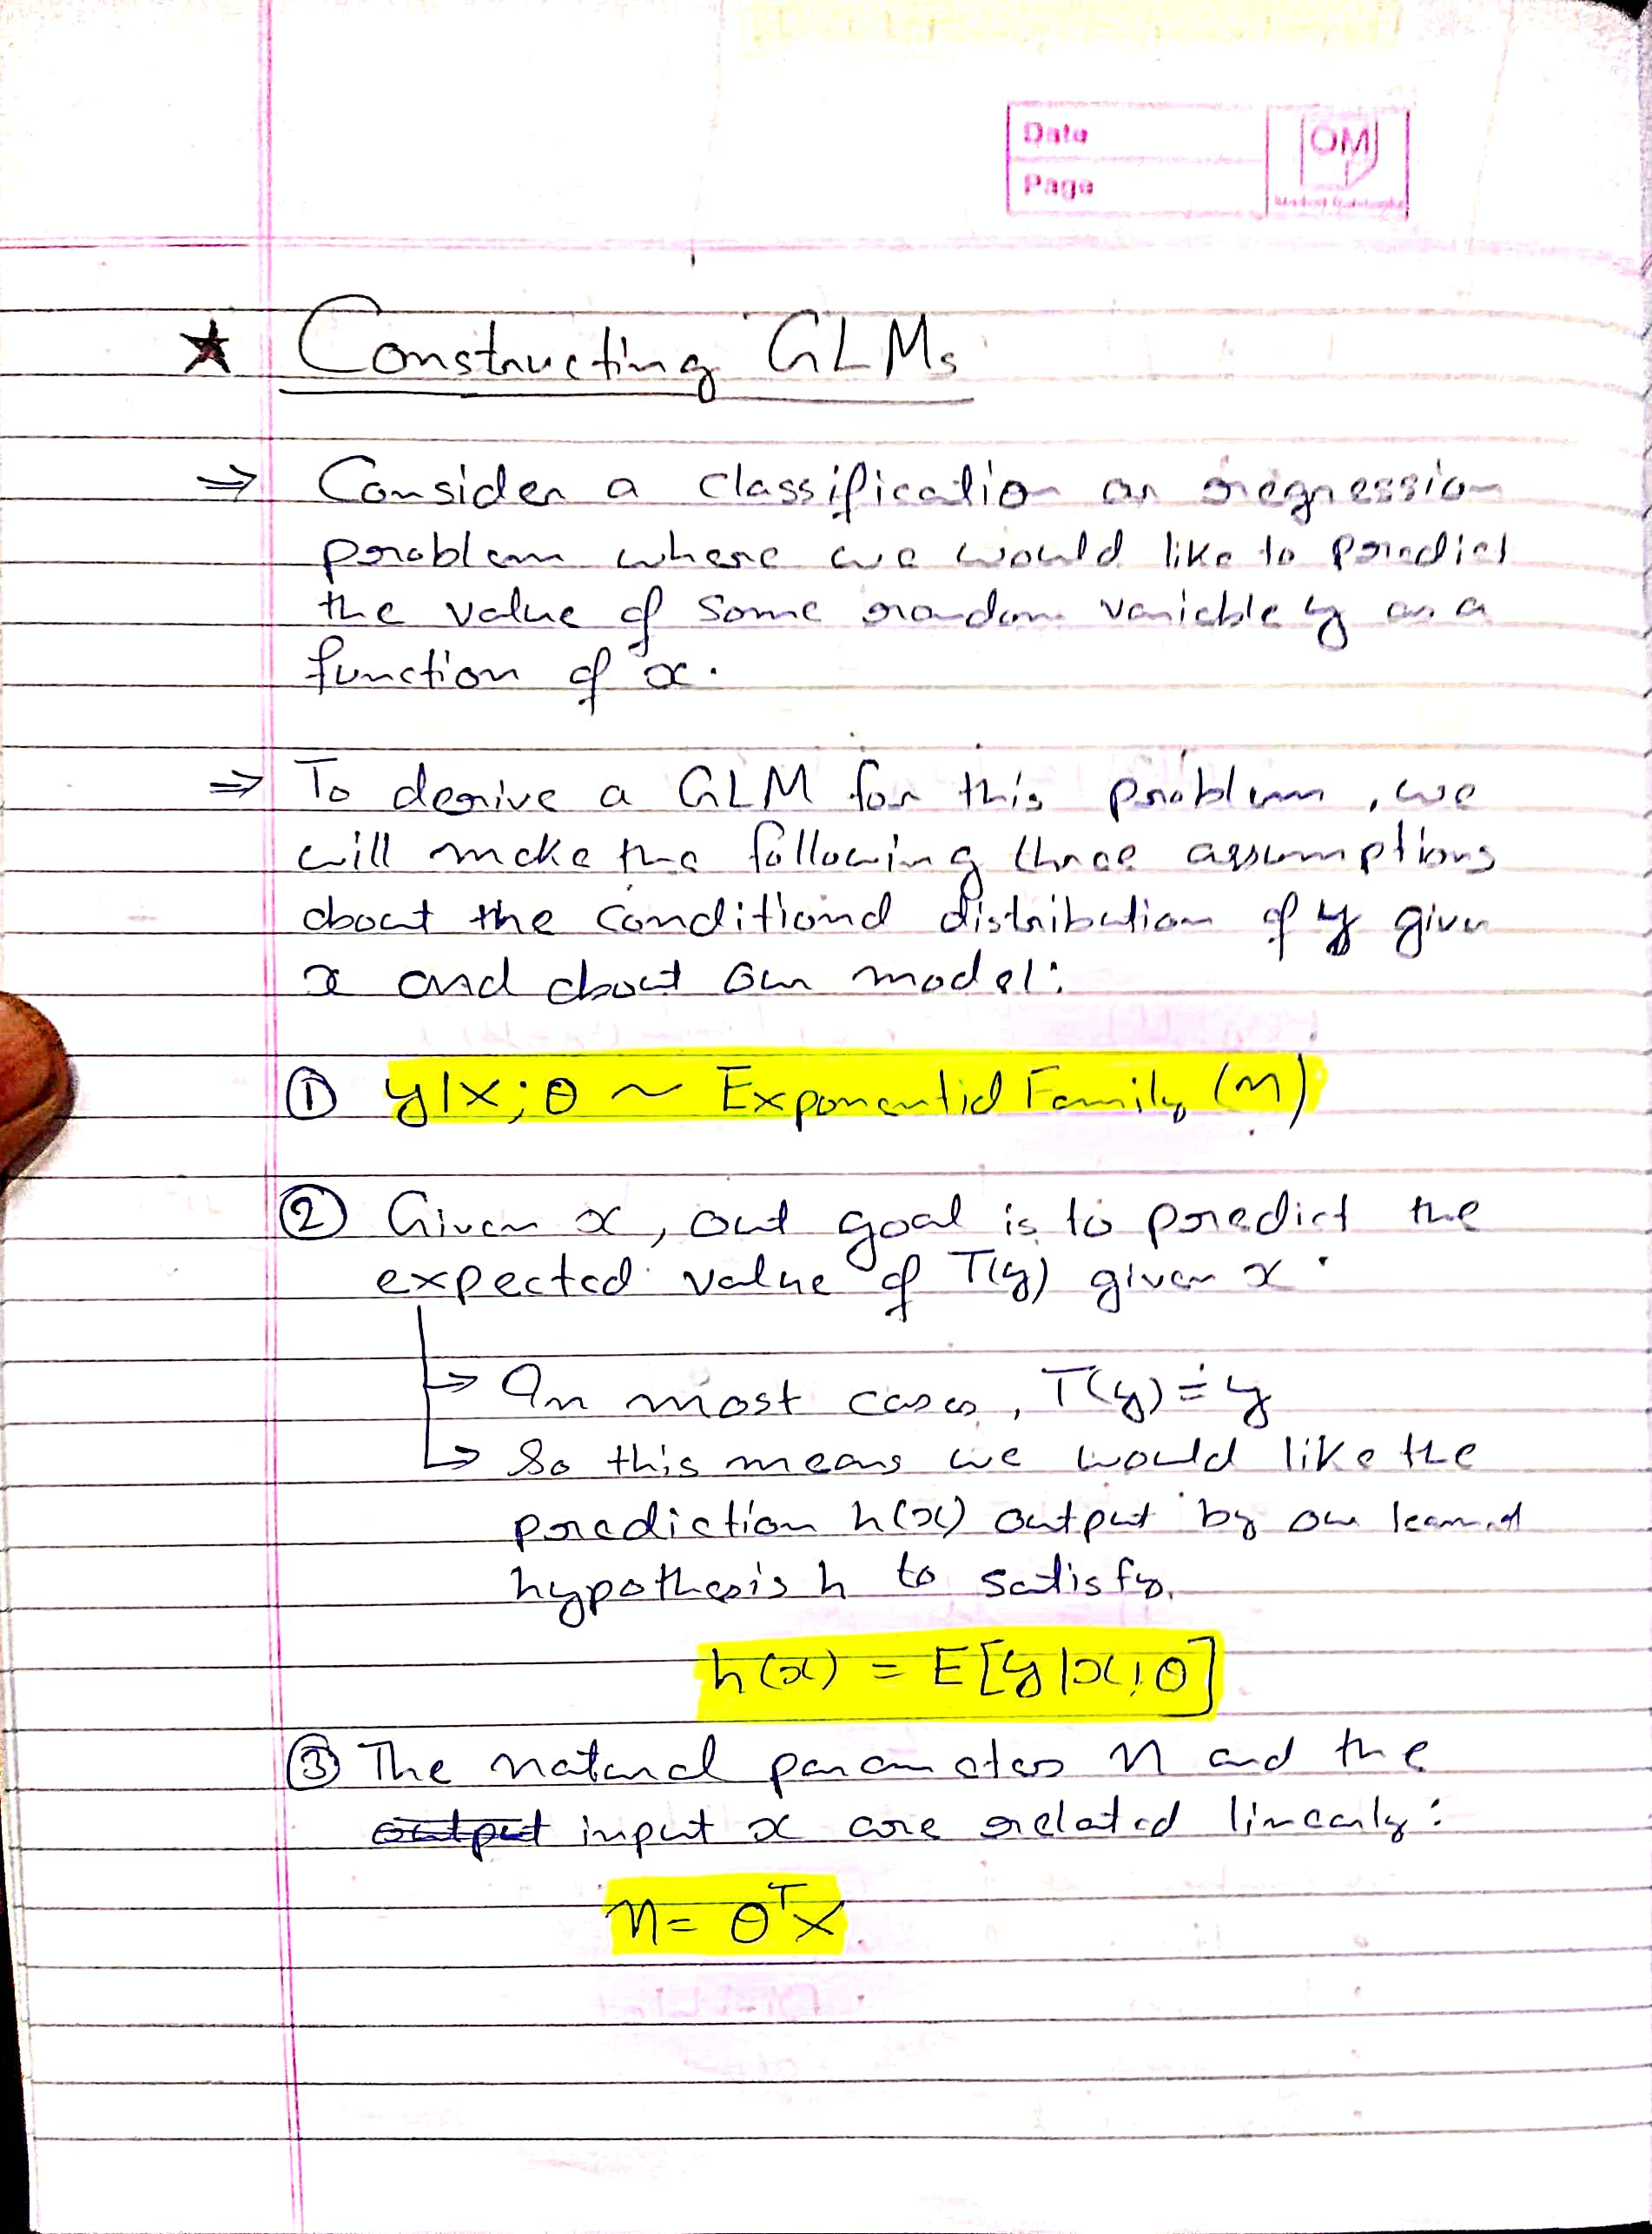 Date
OM
Page
★ Constructing GLMs
⇒ Consider a classification or regression
problem where we would like to predict
the value of some random variable y as a
function of x.
⇒ To derive a GLM for this problem, we
will make the following three assumptions
about the conditional distribution of y given
x and about our model:
① y|x; θ ~ Exponential Family (η)
② Given x, out goal is to predict the
expected value of T(y) given x.
↳ In most cases, T(y) = y
↳ So this means we would like the
prediction h(x) output by our learned
hypothesis h to satisfy.
h(x) = E[y|x; θ]
③ The natural parameters η and the
output input x are related linearly:
η = θᵀx